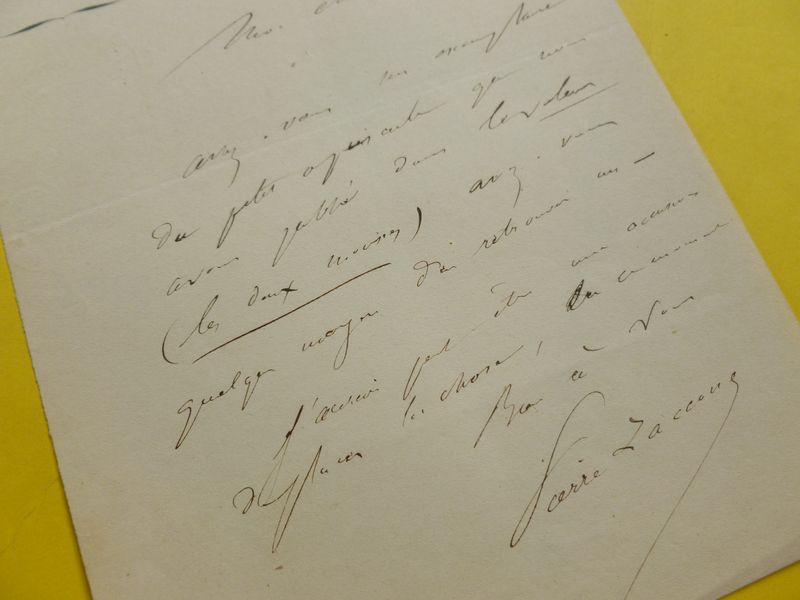 Mon ch
avez-vous un exemplaire
du petit opuscule que nous
avons publié dans le voleur
(les deux moines) avez-vous
quelque moyen d'en retrouver un -
J'aurais peut être une occasion
de placer la chose, en ce moment
Bon à vous
Pierre Zaccone